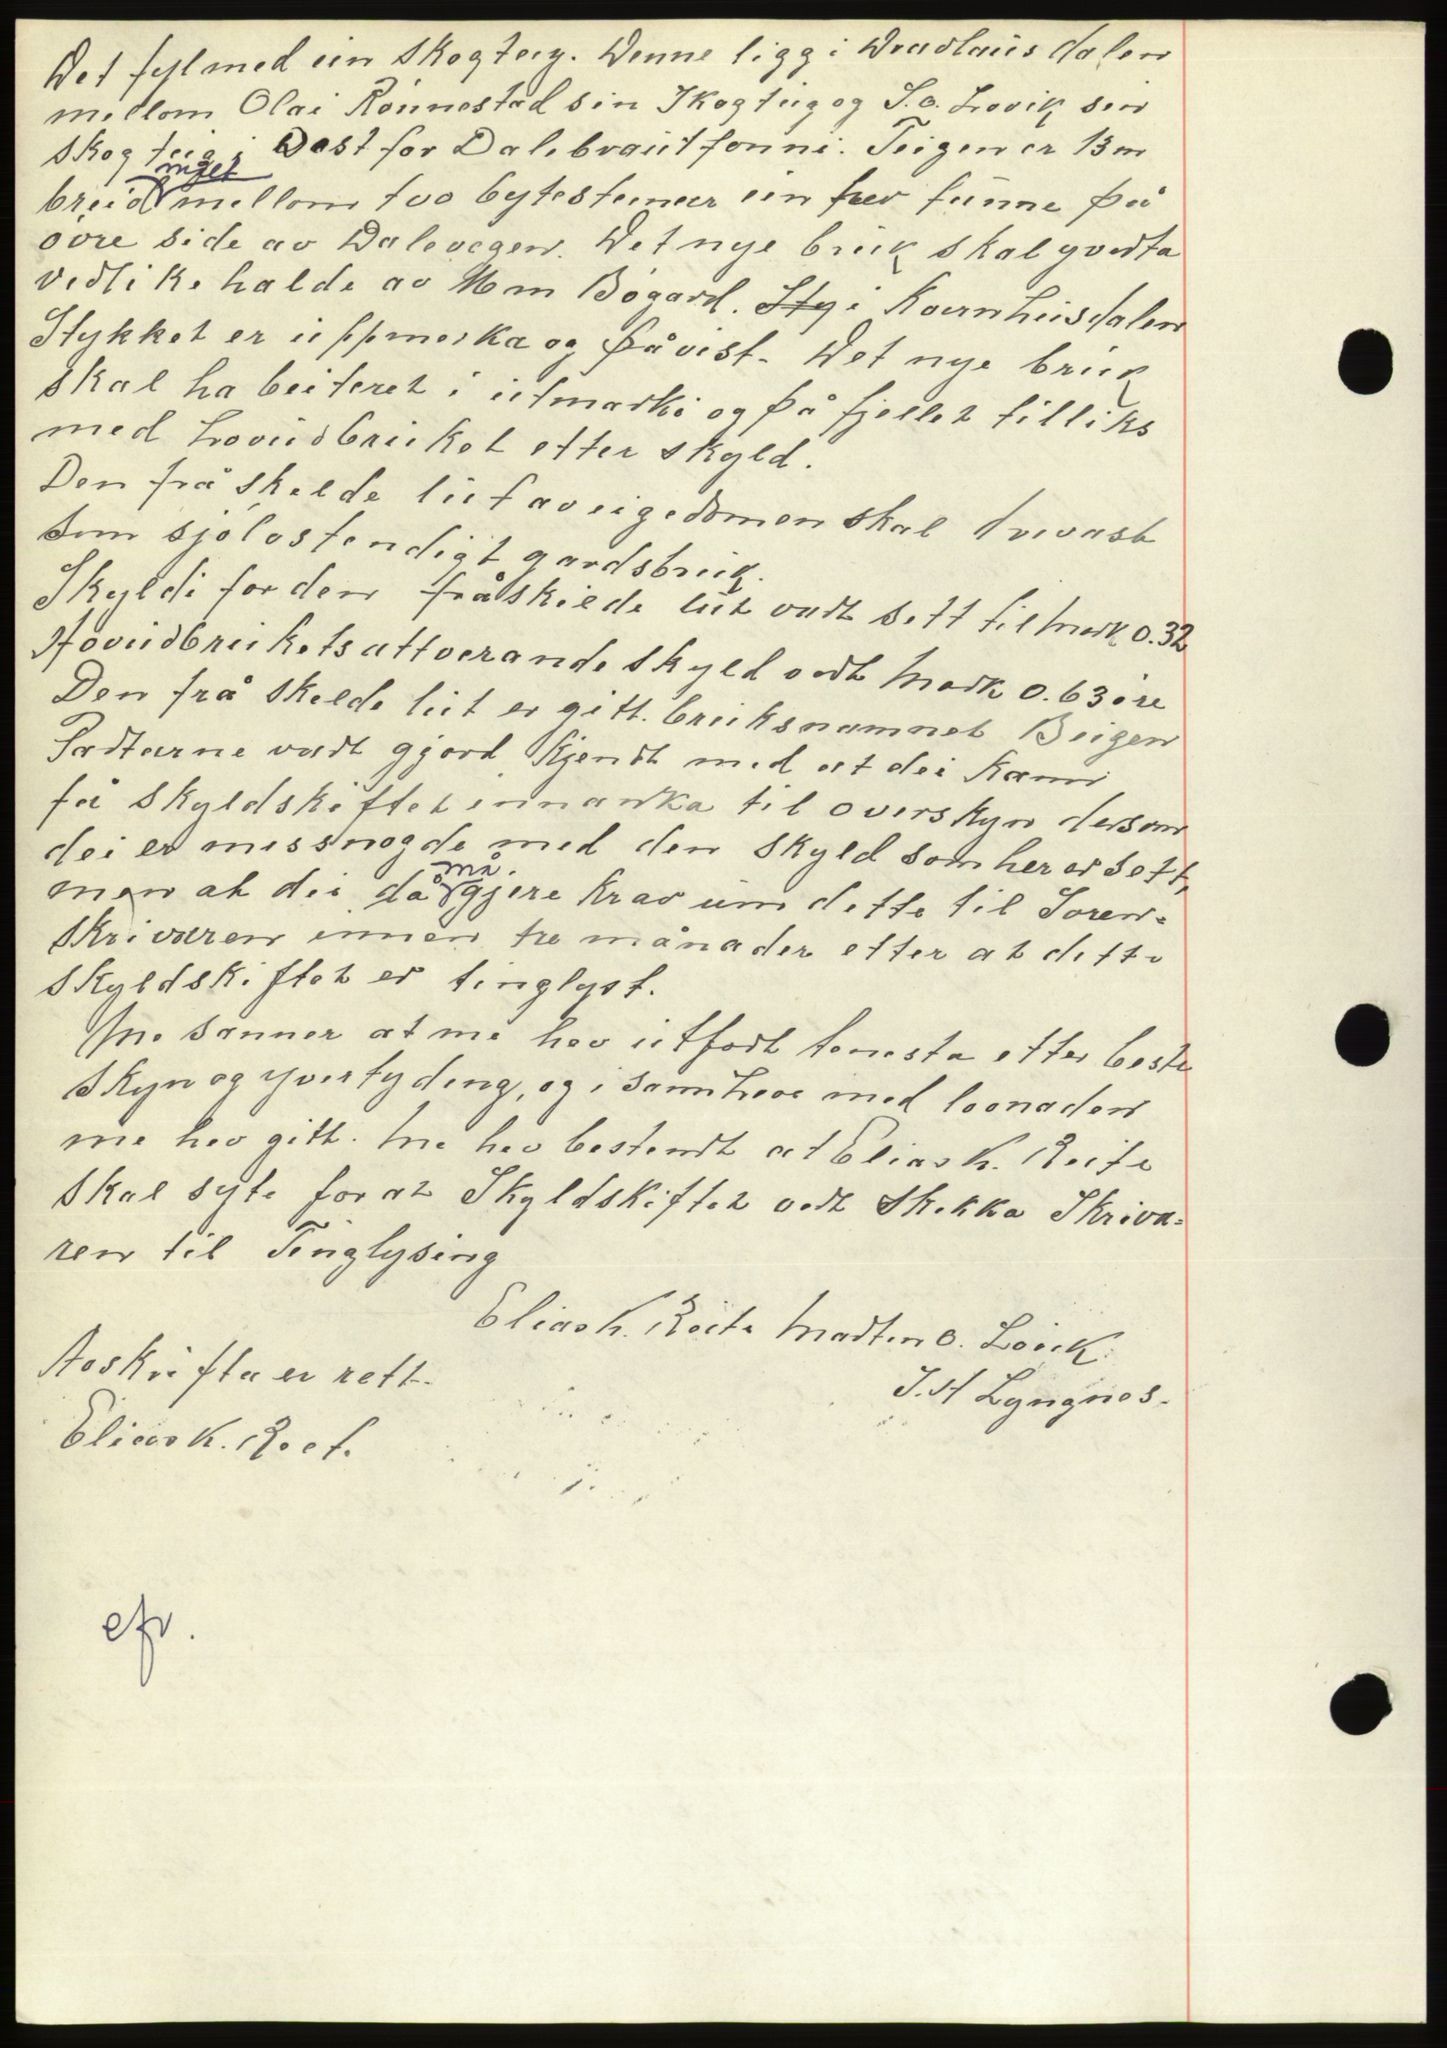 Det fyl med ein skogteig. Denne ligg i Draurlausdalen
mellom Olai Rønnestad sin Skogteig og S. O. Lovik sin
skogteig i Vest for Dalebrautfonni. Teigen er 13 m
breid mellom two bytesteinar ein hev funne på
øvre side av Dalevegen. Det nye bruk skal yverta
vedlikehalde av 14 m Bøgard. Sty i Kvernhusdalen
Stykket er uppmerka og påvist. Det nye bruk
skal ha beiteret i utmarki og på fjellet tilliks
med hovudbruket etter skyld.
Den fråskelde lut av eigedomen skal drivast
som sjølvstendigt gardsbruk.
Skyldi for den fråskilde lut vart sett til mark 0.32
Hovudbrukets attverande skyld vert Mark 0.63 øre
Den fråskelde lut er gitt bruksnamnet Beigen
Partarne vart gjord kjendt med at dei kann
få skyldskiftet innanka til overskyn dersom
dei er missnøgde med den skyld som her er sett,
men at dei då må gjere krav um dette til Soren=
skrivaren innen tre månader etter at dette
skyldskiftet er tinglyst.
Me sanner at me hev utført tenesta etter beste
skyn og yvertyding, og i samhøve med lovnaden
me hev gitt. Me hev bestemt at Elias K. Reite
skal syte for at Skyldskiftet vert skikka Skriva=
ren til Tinglysing
Elias K. Reite Martin O. Løvik
Avskrifta er rett.
J. H Lyngnes.
Elias K. Reite
efr.